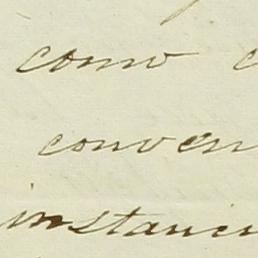 como
conven
instanci